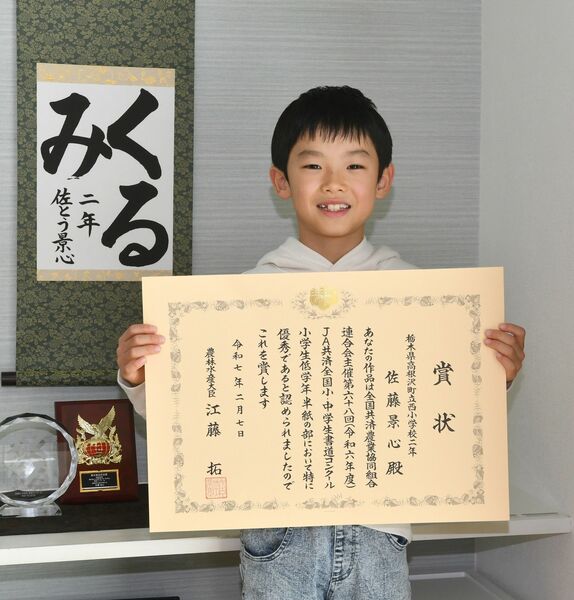 くるみ
二年
佐とう景心
賞状
栃木県高根沢町立西小学校二年
佐藤景心殿
あなたの作品は全国共済農業協同組合
連合会主催第六十八回(令和六年度)
JA共済全国小・中学生書道コンクール
小学生低学年半紙の部において特に
優秀であると認められましたので
これを賞します
令和七年二月七日
農林水産大臣 江藤拓